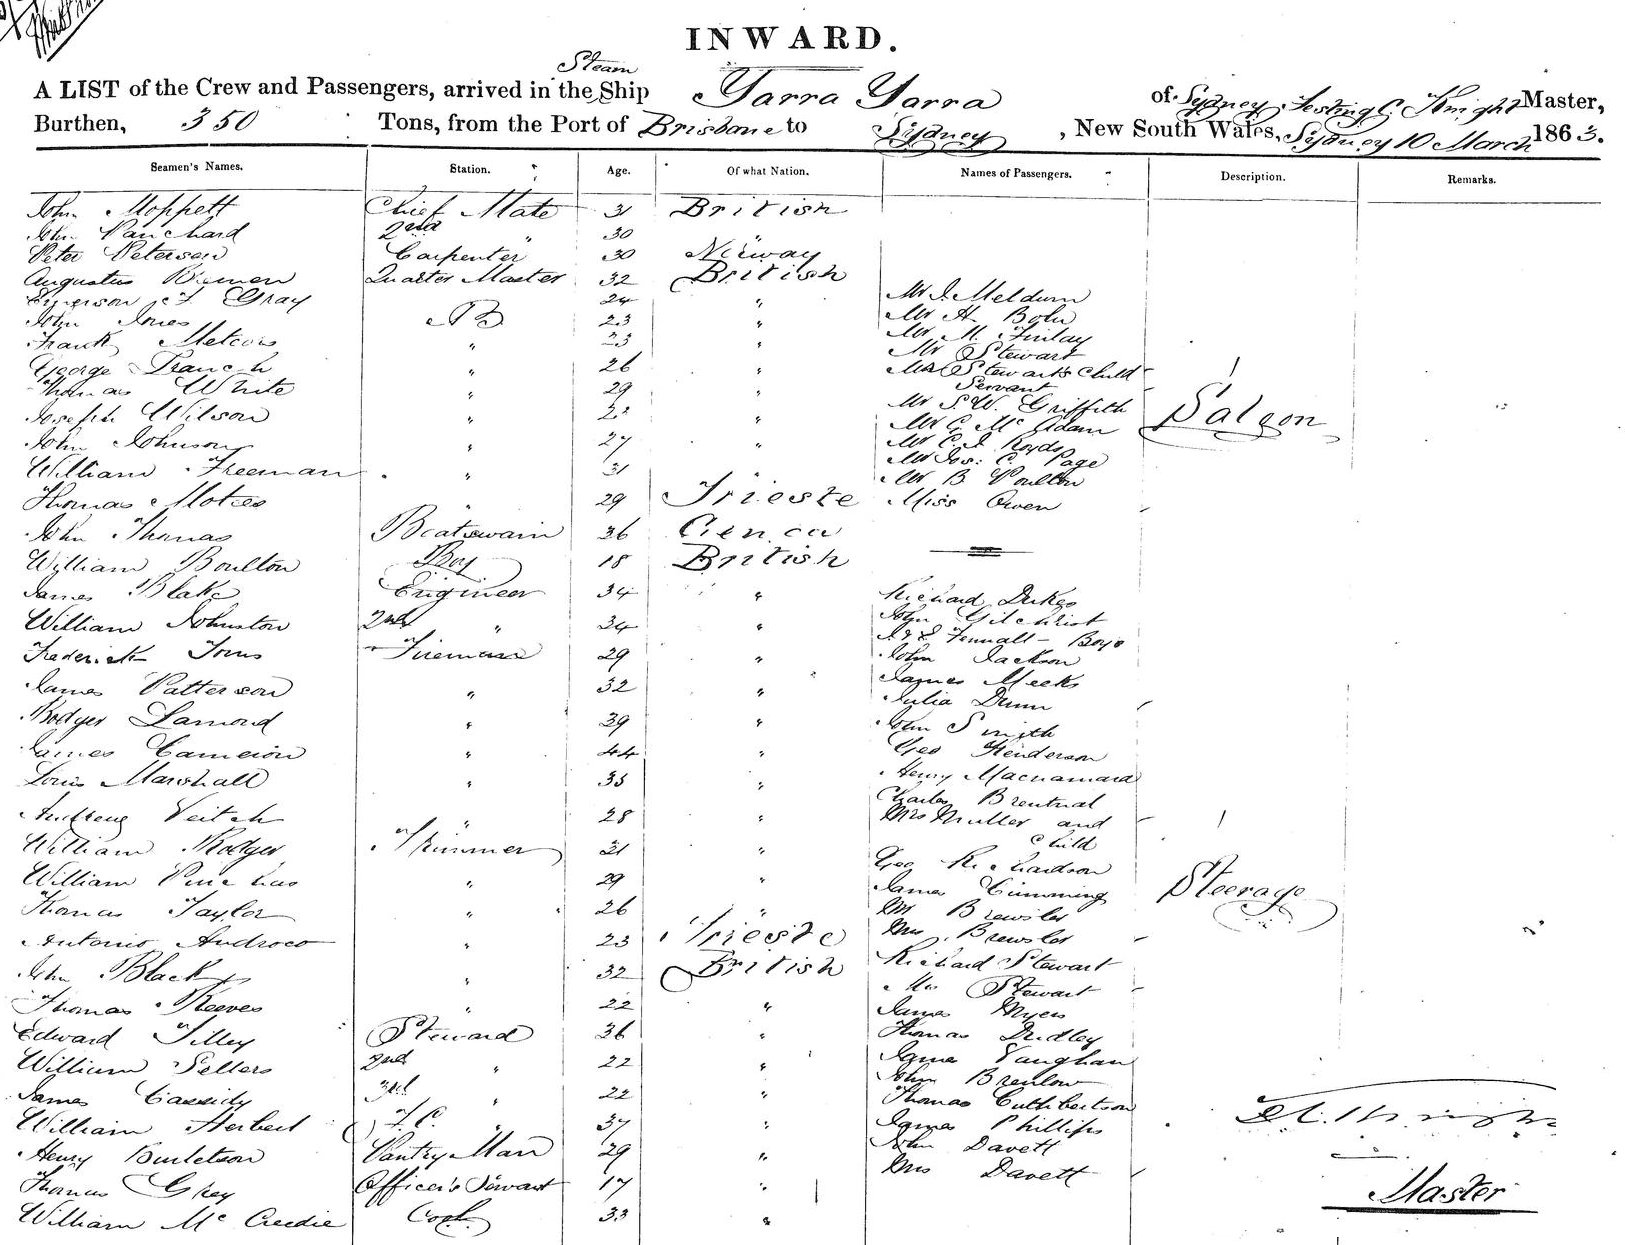 INWARD.
Steam
A LIST of the Crew and Passengers, arrived in the Ship Yarra Yarra of Sydney, Knight Master,
Burthen, 350 Tons, from the Port of Brisbane to Sydney, New South Wales, Sydney 10 March 1863.
Seamen's Names. Station. Age. Of what Nation. Names of Passengers. Description. Remarks.
John Moppett Chief Mate 31 British
John Panchard 2nd " 30 "
Peter Peterson Carpenter 30 Norway
Augustus Quarter Master 32 British
Gray 24 " Mr J. Meldum
John Jones AB 23 " Mr H. Bolu
Frank " 23 " Mr M. Finlay
Mr Stewart
George " 26 " Stewart's Child
Thomas White " 29 " Servant
Joseph Wilson " " Mr S.W. Griffith
Mr G. McAdam
John Johnson " 27 " Mr E. I. Royds
Mr Jos: C. Page
William Freeman " 31 " Mr B Poulton
Thomas Moties " 29 Trieste Miss Owen
Saloon
John Thomas Boatswain 36 Genoa
William Boulton Boy 18 British
James Blake Engineer 34 " Richard Dukes
William Johnston 2nd " 34 " John Gilchrist
Boys
Frederick Fireman 29 " John Jackson
James Patterson " 32 " James Meeks
Julia Dunn
Rodger Lamond " 39 " John Smith
James Cameron " 44 " Geo Henderson
Louis Marshall " 35 " Henry Macnamara
Charles Brentnal
Andrew Veitch " 28 " Mrs Muller and
William Rodger Trimmer 21 " Child
Geo Richardson
William " 29 " James Cumming
Steerage
Thomas Taylor " 26 " Mr Brewster
Antonio Androco " 23 Trieste Mrs Brewster
John Black " 32 British Richard Stewart
Mrs Stewart
Thomas Reeves " 22 " James Myers
Edward Tilley Steward 36 " Thomas Dudley
William Sellers 2nd " 22 " James Vaughan
John Brenlow
James Cassidy 3rd " 22 " Thomas Cuthbertson
William Herbert F.C. 37 " James Phillips
Henry Burletson Pantry Man 29 " John Davett
Thomas Grey Officer's Servant 17 " Mrs Davett
William McCredie Cook 33 "
Master